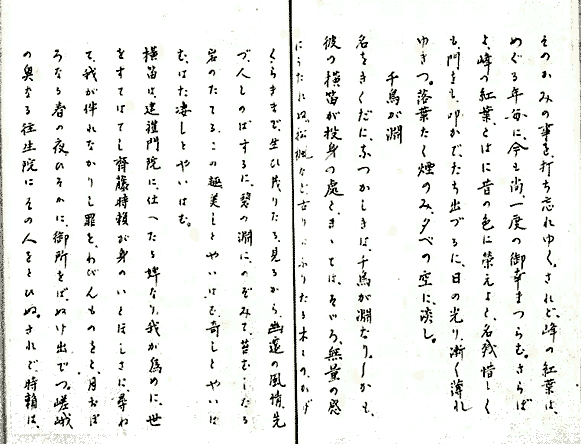 そのかみの事を、打ち忘れゆく。されど、峰の紅葉は、
めぐる年毎に、今も尚、一度の御幸まつらむ。さらば
よ、峰の紅葉、とはに昔の色に榮えよと、名殘惜しく
も、門をも、叩かでたち出づるに、日の光り、漸く薄れ
ゆきつ。落葉たく煙のみ、夕べの空に、淡し。
千鳥が淵
名をきくだに、なつかしきは、千鳥が淵なり。しかも、
彼の横笛が投身の處と、きゝては、そゞろ、無量の感
にうたれぬ。
くらきまで、生ひ茂りたる、見るから、幽邃の風情、先
づ、人しのばするに、碧の淵に、のぞみて、苔むしたる
岩のたてる、この趣、美しとやいはむ、奇しとやいは
む、はた凄しとやいはむ。
横笛は、建禮門院に、仕へたる婢なり。我が爲めに、世
をすてはてし、齊藤時頼が身のいとほしさに、尋ね
て、我が伴れなかりし罪を、わびんものをと、月おぼ
ろなる春の夜ひそかに、御所をば、ぬけ出でつ。嵯峨
の奥なる往生院に、その人をとひぬ。されど、時頼は、